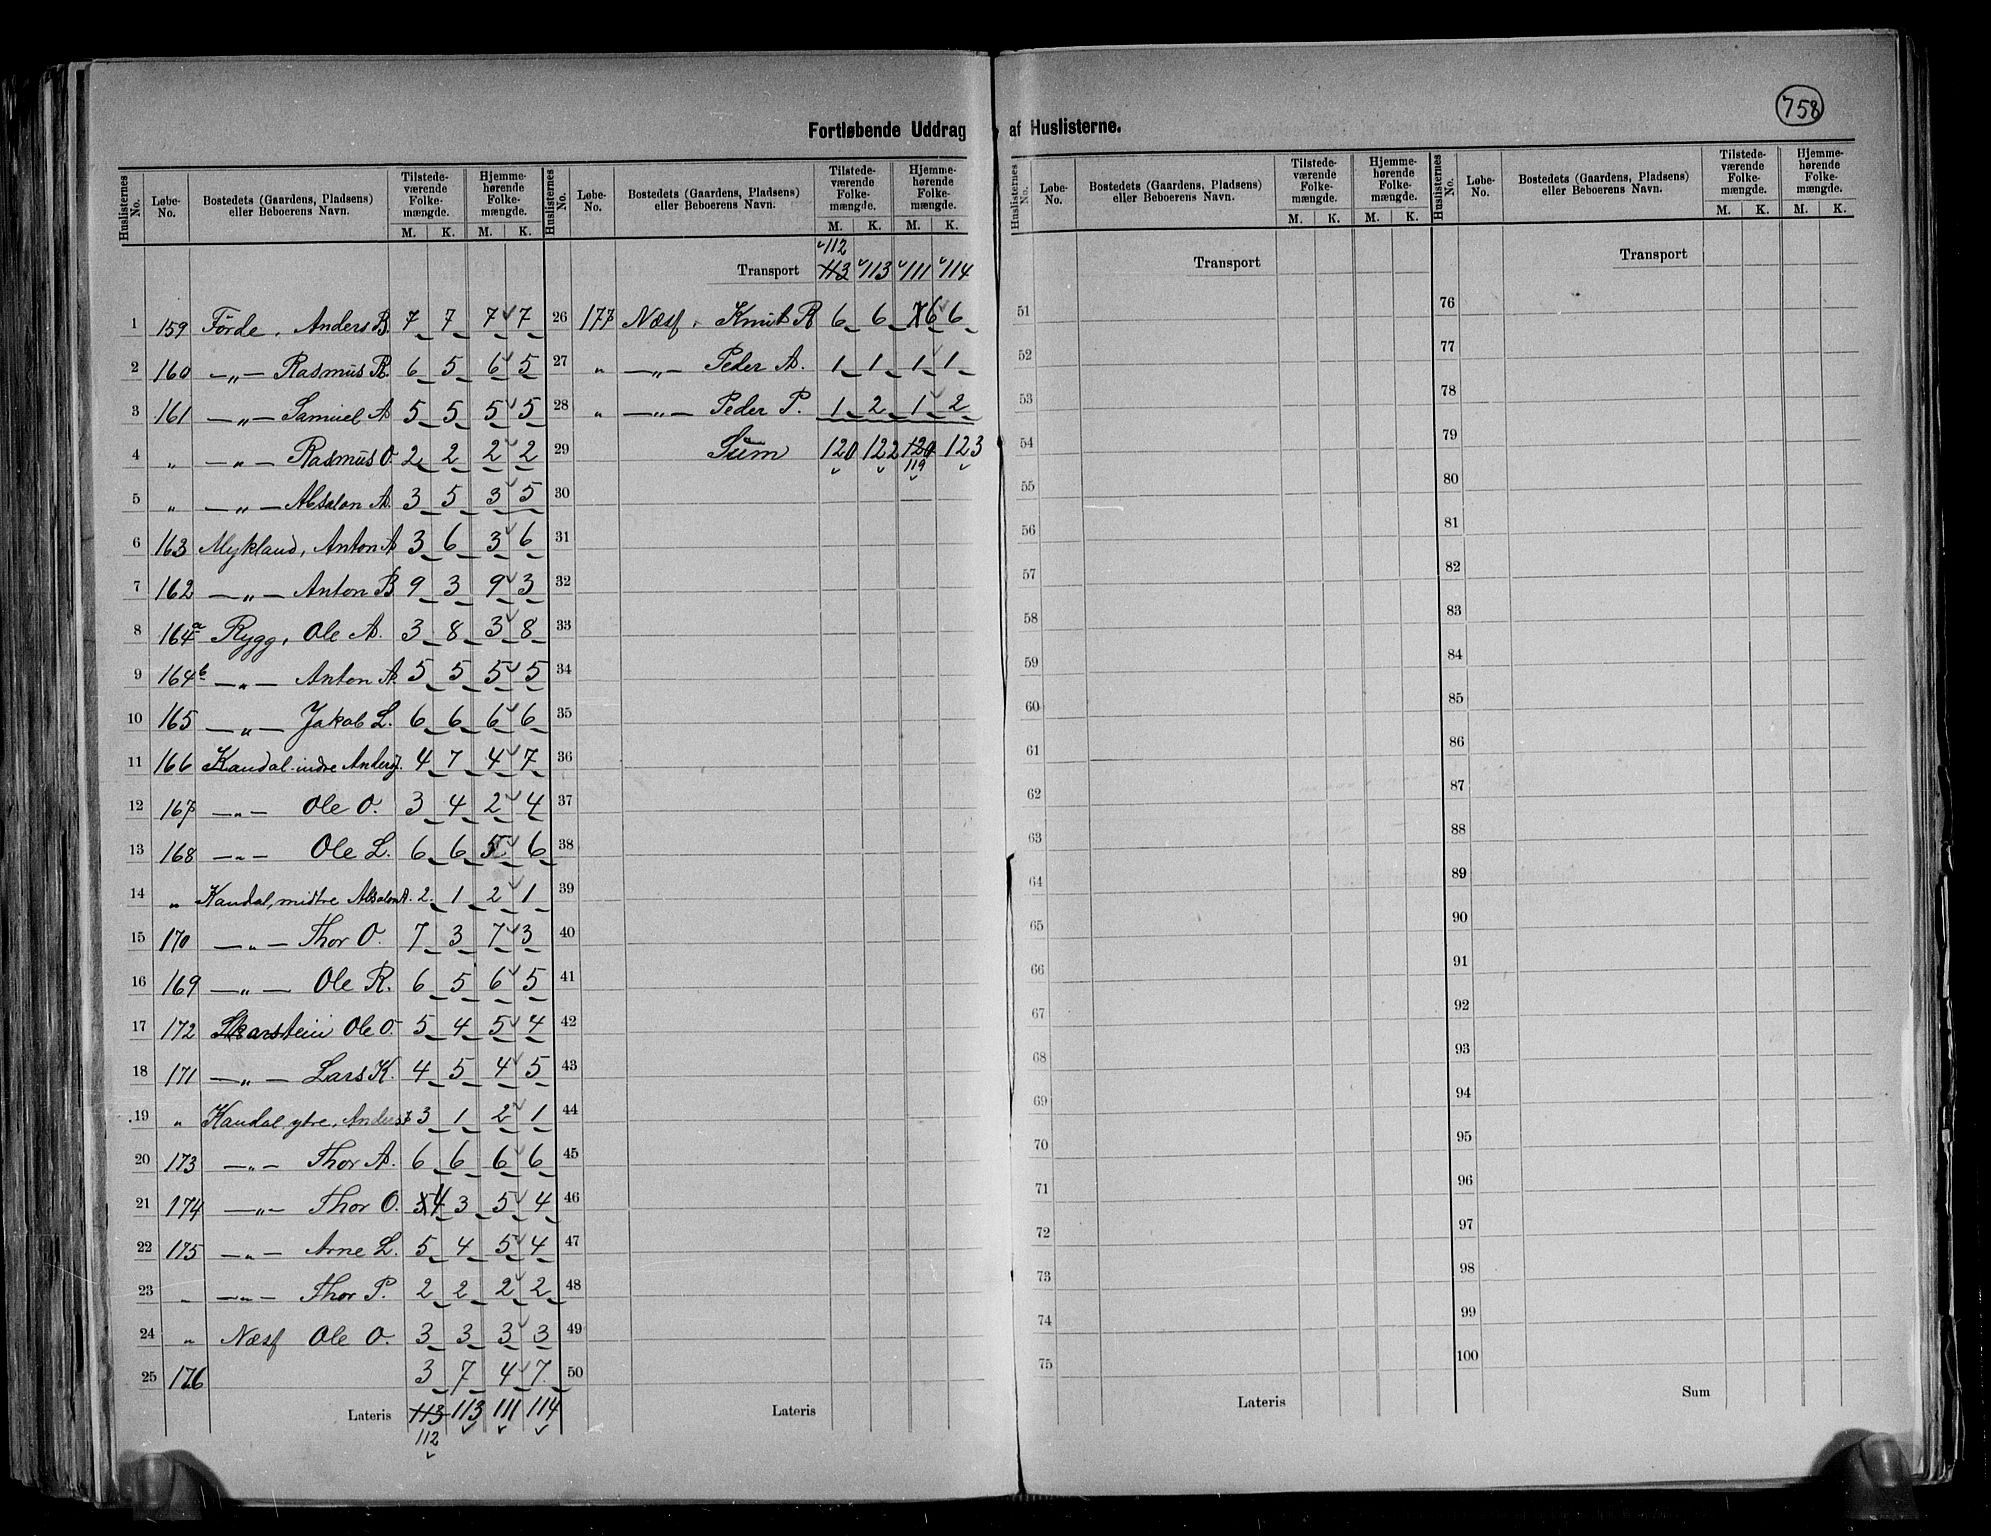 758
Fortløbende Uddrag af Huslisterne.
Huslisternes No. Løbe-No. Bostedets (Gaardens, Pladsens) eller Beboerens Navn. Tilstedeværende Folkemængde. M. K. Hjemmehørende Folkemængde. M. K.
1 159 Förde, Anders B. 7 7 7 7
2 160 —„— Rasmus R. 6 5 6 5
3 161 —„— Samuel A 5 5 5 5
4 „ —„— Rasmus O. 2 2 2 2
5 „ —„— Absalon A. 3 5 3 5
6 163 Myklund, Anton A 3 6 3 6
7 162 —„— Anton B 9 3 9 3
8 164a Rygg, Ole A. 3 8 3 8
9 164b —„— Anton A. 5 5 5 5
10 165 —„— Jakob L. 6 6 6 6
11 166 Kandal indre Anders J. 4 7 4 7
12 167 —„— Ole O. 3 4 2 4
13 168 —„— Ole L. 6 6 5 6
14 „ Kandal, midtre Absalon A. 2 1 2 1
15 170 —„— Thor O. 7 3 7 3
16 169 —„— Ole R. 6 5 6 5
17 172 Skarstein Ole O. 5 4 5 4
18 171 —„— Lars K. 4 5 4 5
19 „ Kandal ytre, Anders 3 1 2 1
20 173 —„— Thor A. 6 6 6 6
21 174 —„— Thor O. 5 4 3 5 4
22 175 —„— Arne L. 5 4 5 4
23 „ —„— Thor P. 2 2 2 2
24 „ Næsf Ole O. 3 3 3 3
25 176 3 7 4 7
Lateris 113 113 111 114
112
Huslisternes No. Løbe-No. Bostedets (Gaardens, Pladsens) eller Beboerens Navn. Tilstedeværende Folkemængde. M. K. Hjemmehørende Folkemængde. M. K.
112
Transport 113 113 111 114
26 177 Næsf, Knut R 6 6 7 6 6
27 „ —„— Peder A. 1 1 1 1
28 „ —„— Peder P. 1 2 1 2
29 Sum 120 122 120 123
119
30
31
32
33
34
35
36
37
38
39
40
41
42
43
44
45
46
47
48
49
50
Lateris
Huslisternes No. Løbe-No. Bostedets (Gaardens, Pladsens) eller Beboerens Navn. Tilstedeværende Folkemængde. M. K. Hjemmehørende Folkemængde. M. K.
Transport
51
52
53
54
55
56
57
58
59
60
61
62
63
64
65
66
67
68
69
70
71
72
73
74
75
Lateris
Huslisternes No. Løbe-No. Bostedets (Gaardens, Pladsens) eller Beboerens Navn. Tilstedeværende Folkemængde. M. K. Hjemmehørende Folkemængde. M. K.
Transport
76
77
78
79
80
81
82
83
84
85
86
87
88
89
90
91
92
93
94
95
96
97
98
99
100
Sum